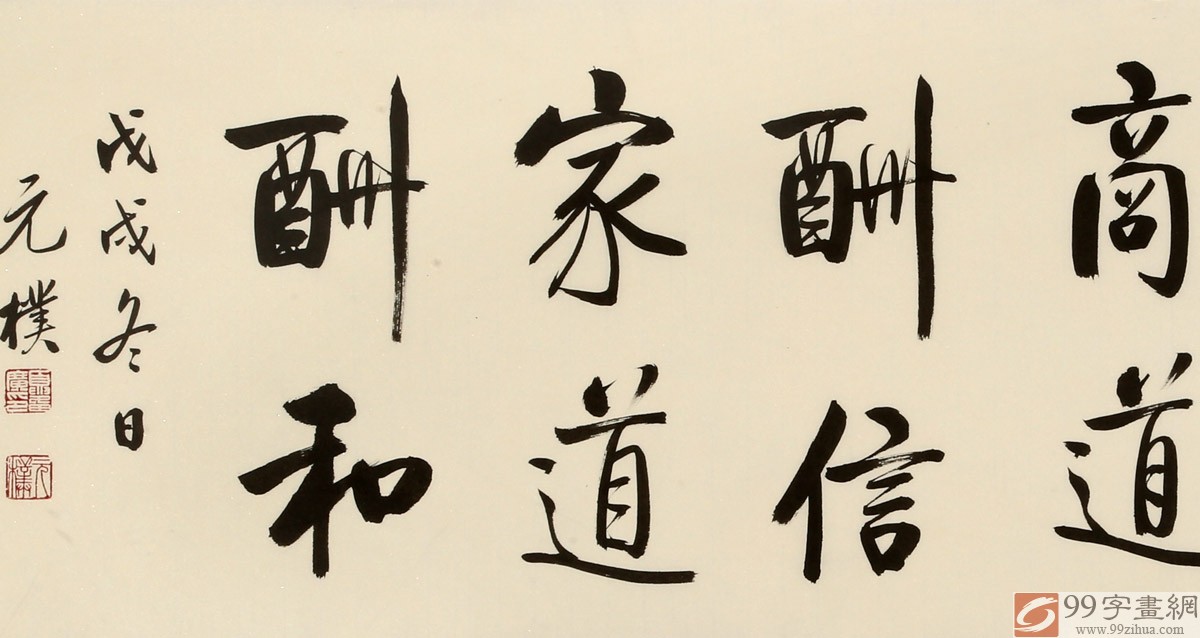 商道
酬信
家道
酬和
戊戌冬日
元樸
元樸
99字畫網
www.99zihua.com